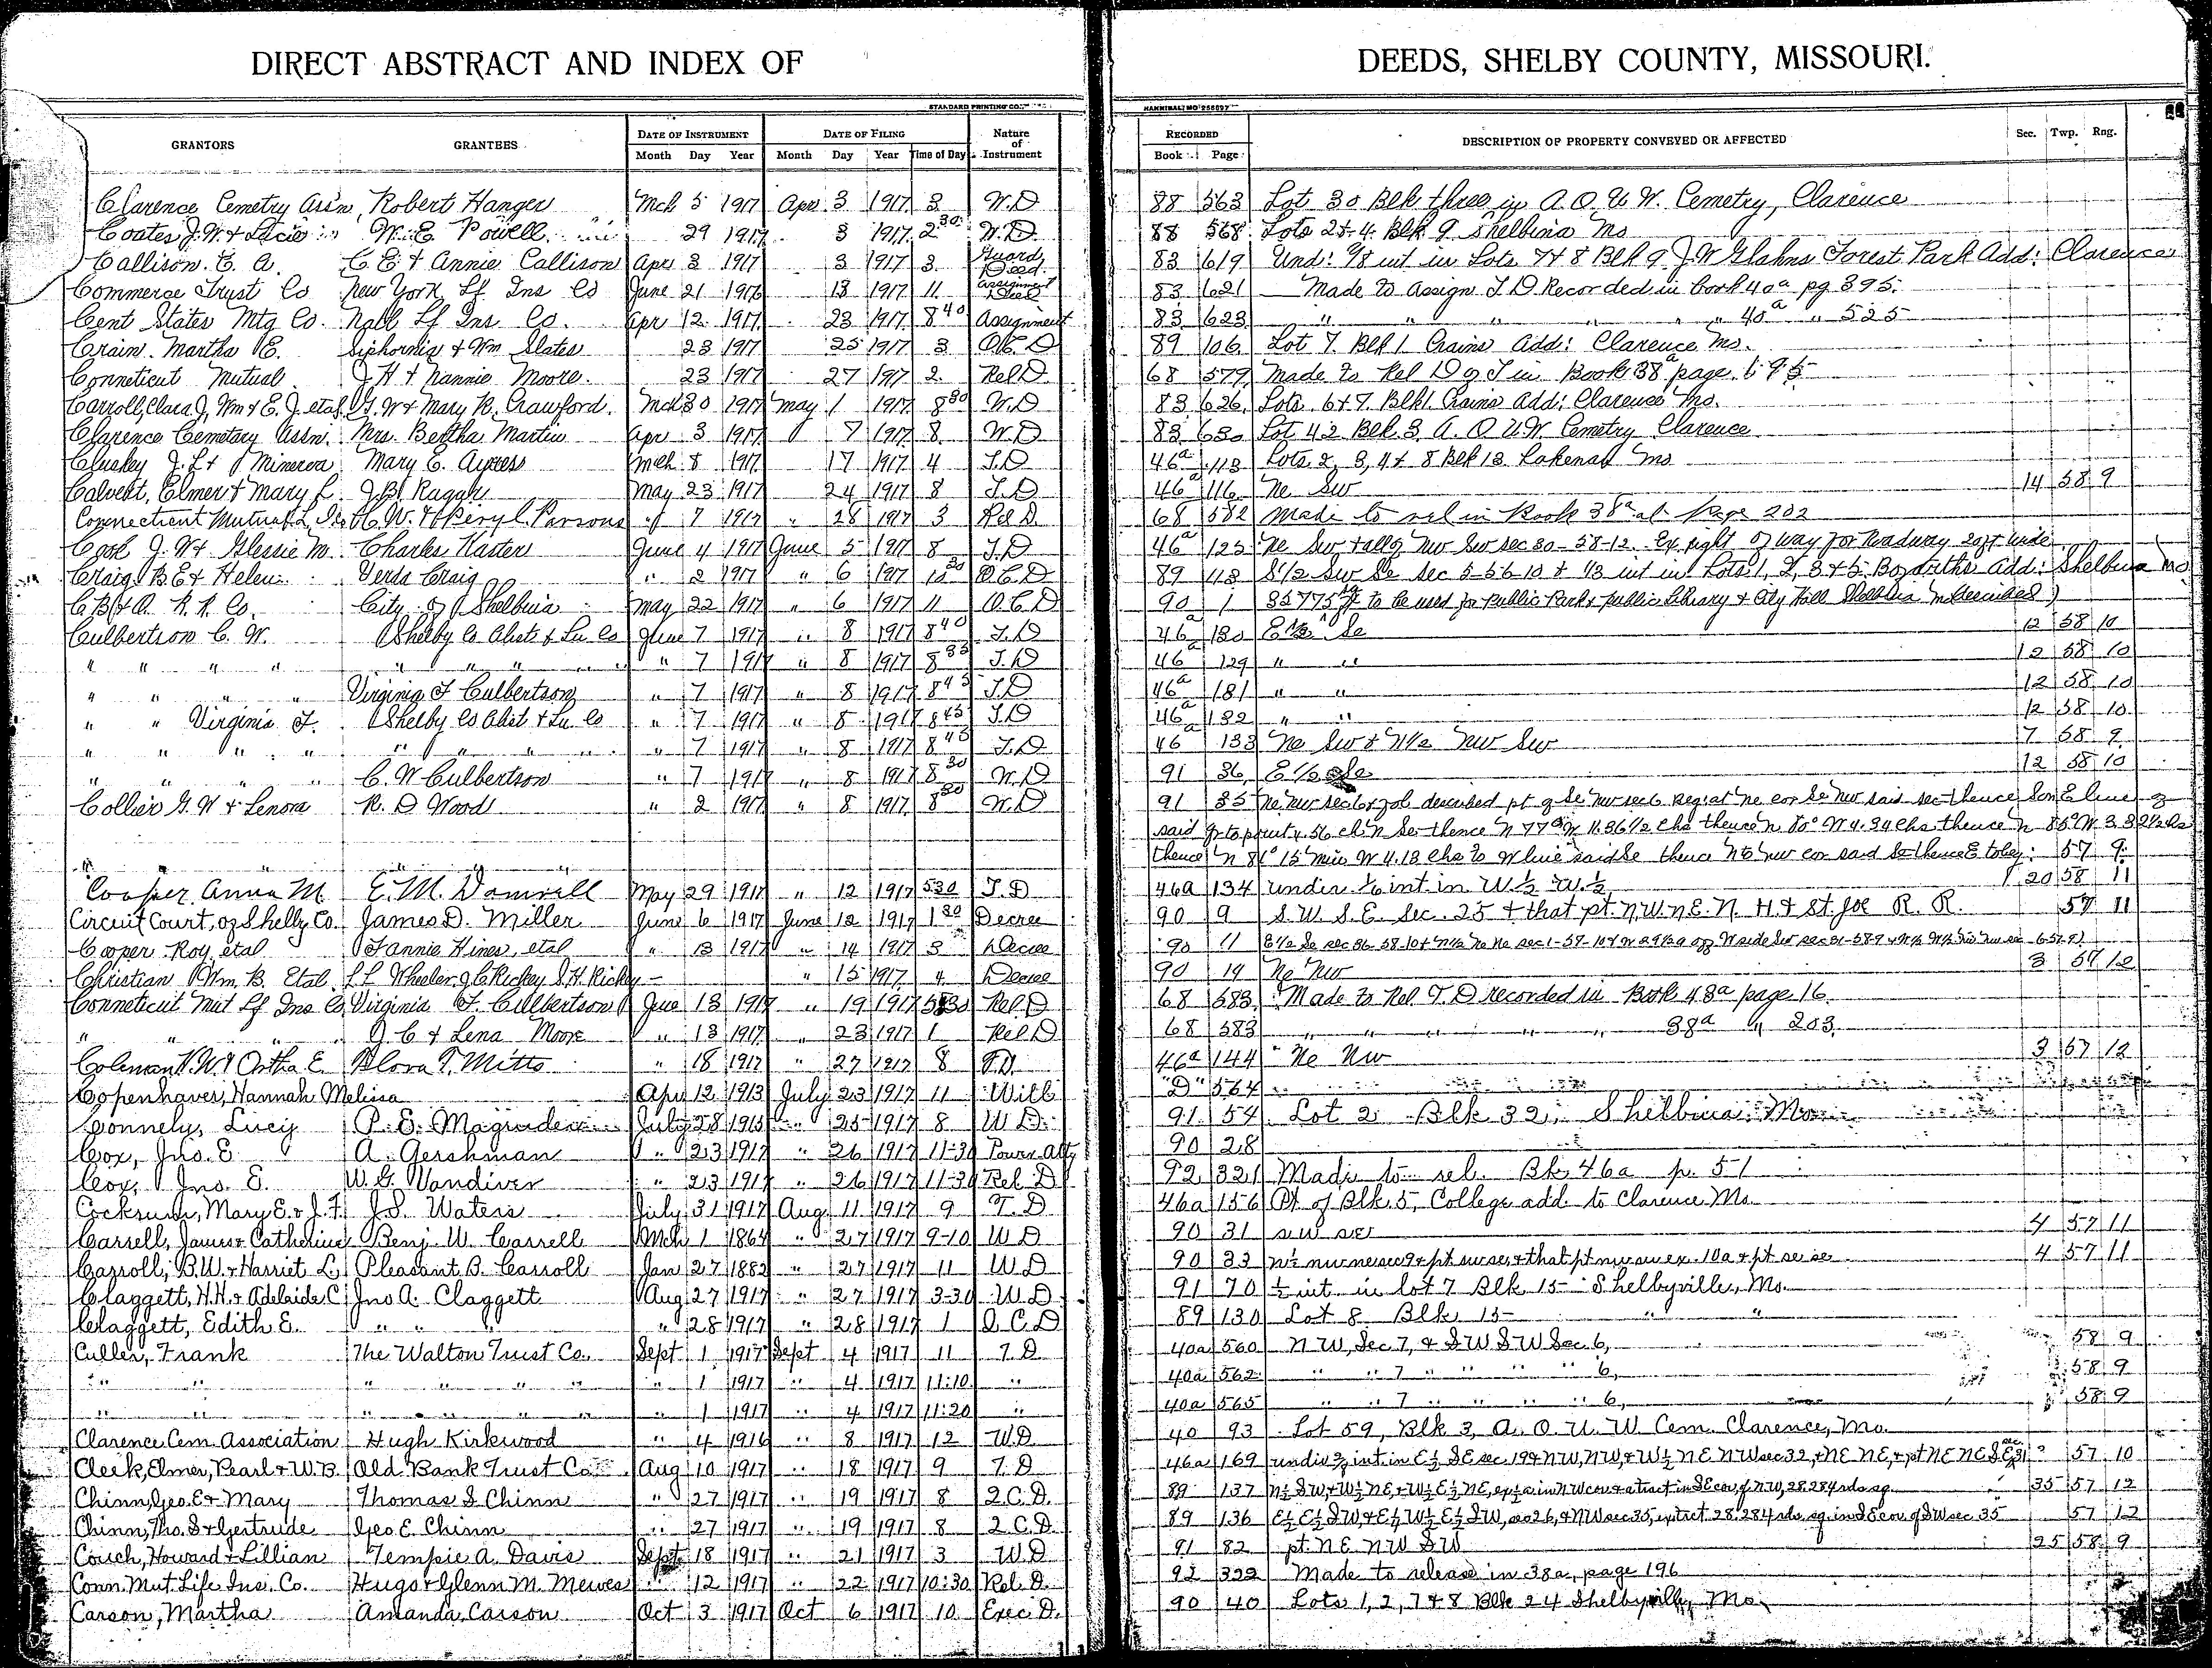 DIRECT ABSTRACT AND INDEX OF DEEDS, SHELBY COUNTY, MISSOURI.
STANDARD PRINTING CO. HANNIBAL, MO
GRANTORS GRANTEES DATE OF INSTRUMENT DATE OF FILING Nature of Instrument RECORDED DESCRIPTION OF PROPERTY CONVEYED OR AFFECTED Sec. Twp. Rng.
Month Day Year Month Day Year Time of Day Book Page
Clarence Cemetry Assn Robert Hanger Mch 5 1917 Apr 3 1917 3 W.D 88 563 Lot 30 Blk three in A.O.U.W. Cemetry, Clarence
Coates J.W. & Lucie W. E. Powell 29 1917 3 1917 2 30 W.D. 88 568 Lots 2 & 4 Blk 9 Shelbina Mo
Callison E. A. C E & Annie Callison Apr 3 1917 3 1917 3 Guard Deed 83 619 Und 1/8 int in Lots 7 & 8 Blk 9 J.W. Glahns Forest Park Add: Clarence
Commerce Trust Co New York Lf Ins Co June 21 1916 13 1917 11 Assignment Deed 83 621 Made to Assign T D Recorded in book 40a pg 395
Cent States Mtg Co. Natl Lf Ins Co. Apr 12 1917 23 1917 8 40 Assignment 83 623 " " " " " 40a " 525
Crain Martha E. Siphornia & Wm Slates 23 1917 25 1917 3 Q.C.D 89 106 Lot 7 Blk 1 Crains Add: Clarence Mo.
Conneticut Mutual J H & Nannie Moore 23 1917 27 1917 2 Rel D 68 579 Made to Rel D of T in Book 38a page
Carroll, Clara J, Wm & E. J. etal G. W & Mary R. Crawford Mch 30 1917 May 1 1917 8 30 W.D 83 626 Lots 6 & 7 Blk 1 Crains Add: Clarence Mo.
Clarence Cemetary Assn. Mrs. Bertha Martin Apr 3 1917 7 1917 8 W.D 83 630 Lot 42 Blk 3 A.O.U.W. Cemetry Clarence
Cluskey J. L & Minerva Mary E. Ayress Mch 8 1917 17 1917 4 T.D 46a 113 Lots 2, 3, 4 & 8 Blk 13 Lakenan Mo
Calvert, Elmer & Mary L. J.B. Ragan May 23 1917 24 1917 8 T.D 46a 116 Ne Sw 14 58 9
Connecticut Mutual L. Ins W. & Beryl Parsons " 7 1917 " 28 1917 3 Rel D. 68 582 Made to rel in Book 38a at Page 202
Cook J. W & Glessie M. Charles Kasten June 4 1917 June 5 1917 8 T.D 46a 125 Ne Sw & all of Nw Sw sec 30-58-12. Ex right of way for Roadway 20 ft wide
Craig B E & Helen Verda Craig " 2 1917 " 6 1917 10 30 Q.C.D 89 113 S 1/2 Sw Se Sec 5-56-10 & 1/3 int in Lots 1, 2, 3 & 5 Bozarths Add: Shelbina Mo
C B & Q. R. R. Co. City of Shelbina May 22 1917 " 6 1917 11 Q.C.D 90 1 to be used for Public Park & public Library & City Hall Shelbina
Culbertson C. W. Shelby Co Abst & Ln Co June 7 1917 " 8 1917 8 40 T.D 46a 130 E 1/2 Se 12 58 10
" " " " " " " " " 7 1917 " 8 1917 8 35 T.D 46a 129 " " 12 58 10
" " " " Virginia F Culbertson " 7 1917 " 8 1917 8 45 T.D 46a 131 " " 12 58 10
" " Virginia F. Shelby Co Abst & Ln Co " 7 1917 " 8 1917 8 45 T.D 46a 132 " " 12 58 10
" " " " " " " " " 7 1917 " 8 1917 8 45 T.D 46 133 Ne Sw & N 1/2 Nw Sw 7 58 9
" " " " C. W Culbertson " 7 1917 " 8 1917 8 30 W.D 91 36 E 1/2 Se 12 58 10
Collier G. W & Lenora R. D Wood " 2 1917 " 8 1917 8 30 W.D 91 35 Ne Nw sec 6 & fol described pt of Se Nw sec 6 Beg at Ne cor Se Nw said sec thence S on E line of
said qr to point 4.56 ch N Se thence N 77° W 11.36 1/2 Chs thence N 80° W 4.34 Chs thence N 85° W 3.32 1/2 chs
" " " " thence N 81° 15 min W 4.13 Chs to W line said Se thence N to Nw cor said Se thence E to beg. 57 9
Cooper Anna M. E. M. Damrell May 29 1917 " 12 1917 5 30 T.D 46a 134 undiv 1/6 int in W. 1/2 W. 1/2 20 58 11
Circuit Court, of Shelby Co. James D. Miller June 6 1917 June 12 1917 1 30 Decree 90 9 S.W. S.E. Sec. 25 & that pt N.W. N.E. N. H & St. Joe R. R. 57 11
Cooper Roy, etal Fannie Hines, etal " 13 1917 " 14 1917 3 Decree 90 11
Christian Wm. B. Etal L L Wheeler J C Rickey S.H. Rickey 15 1917 4 Decree 90 14 Ne Nw 3 57 12
Conneticut Mut Lf Ins Co Virginia F. Culbertson June 13 1917 " 19 1917 Rel D 68 583 Made to Rel T. D recorded in Book 48a page 16
" " " J C & Lena Moore " 13 1917 " 23 1917 1 Rel D 68 583 " " " " " 38a " 203
Coleman V. W. & Ortha E. Flora T. Mitts " 18 1917 " 27 1917 8 T.D. 46a 144 Ne Nw 3 57 12
Copenhaver, Hannah Melissa Apr 12 1913 July 23 1917 11 Will "D" 564
Connely, Lucy P. E. Magruder July 28 1915 " 25 1917 8 W D. 91 54 Lot 2 Blk 32, Shelbina Mo.
Cox, Jno. E. A. Gershman " 23 1917 " 26 1917 11-30 Power Atty 90 28
Cox, Jno. E. W. G. Vandiver " 23 1917 " 26 1917 11-30 Rel. D 92 321 Made to rel. Bk 46a p. 51
Cockrum, Mary E. & J. F. J. S. Waters July 31 1917 Aug 11 1917 9 T. D 46a 156 Pt of Blk 5, College add. to Clarence Mo.
Carrell, James & Catherine Benj. W. Carrell Mch 1 1864 " 27 1917 9-10 W D 90 31 sw se 4 57 11
Carroll, B.W. & Harriet L. Pleasant B. Carroll Jan 27 1882 " 27 1917 11 W D 90 33 4 57 11
Claggett, H.H. & Adelaide C. Jno A. Claggett Aug 27 1917 " 27 1917 3-30 W.D. 91 70 1/2 int in lot 7 Blk 15 Shelbyville, Mo.
Claggett, Edith E. " " " " 28 1917 " 28 1917 1 Q C D 89 130 Lot 8 Blk 15 " "
Culler, Frank The Walton Trust Co. Sept 1 1917 Sept 4 1917 11 T. D 40a 560 N W, Sec 7, & S W S W Sec 6, 58 9
" " " " " " " 1 1917 " 4 1917 11:10 " 40a 562 " " 7 " " " 6, 58 9
" " " " " " " 1 1917 " 4 1917 11:20 " 40a 565 " " 7 " " " 6, 58 9
Clarence Cem. Association Hugh Kirkwood " 4 1916 " 8 1917 12 W.D. 40 93 Lot 59, Blk 3, A. O. U. W. Cem. Clarence, Mo.
Cleek, Elmer, Pearl & W.B. Old Bank Trust Co. Aug 10 1917 " 18 1917 9 T. D 46a 169 57 10
Chinn, Geo. E & Mary Thomas S Chinn " 27 1917 " 19 1917 8 Q.C.D. 89 137 35 57 12
Chinn, Tho. S & Gertrude Geo E. Chinn " 27 1917 " 19 1917 8 Q.C.D. 89 136 57 12
Couch, Howard & Lillian Tempie A. Davis Sept 18 1917 " 21 1917 3 W.D 91 82 pt. N E N W S W 25 58 9
Conn. Mut Life Ins. Co. Hugo & Glenn M. Mewes " 12 1917 " 22 1917 10:30 Rel. D. 92 322 Made to release in 38a, page 196
Carson, Martha Amanda Carson Oct 3 1917 Oct 6 1917 10 Exec D. 90 40 Lots 1, 2, 7 & 8 Blk 24 Shelbyville, Mo.